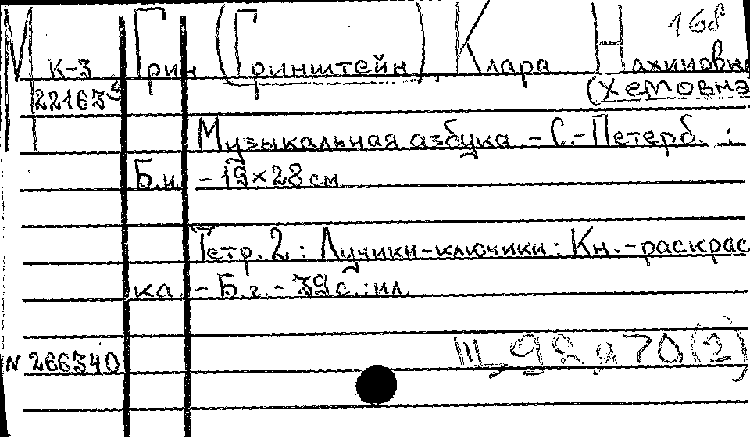 168
М К-3 Грин (Гринштейн), Клара Нахимовна
22163⁹ (Хемовна
Музыкальная азбука - С.-Петерб. :
Б.и. - 19×28 см
Тетр. 2 : Лучики-ключики : Кн.-раскрас
ка. - Б.г. - 39 с. : ил
N 266340